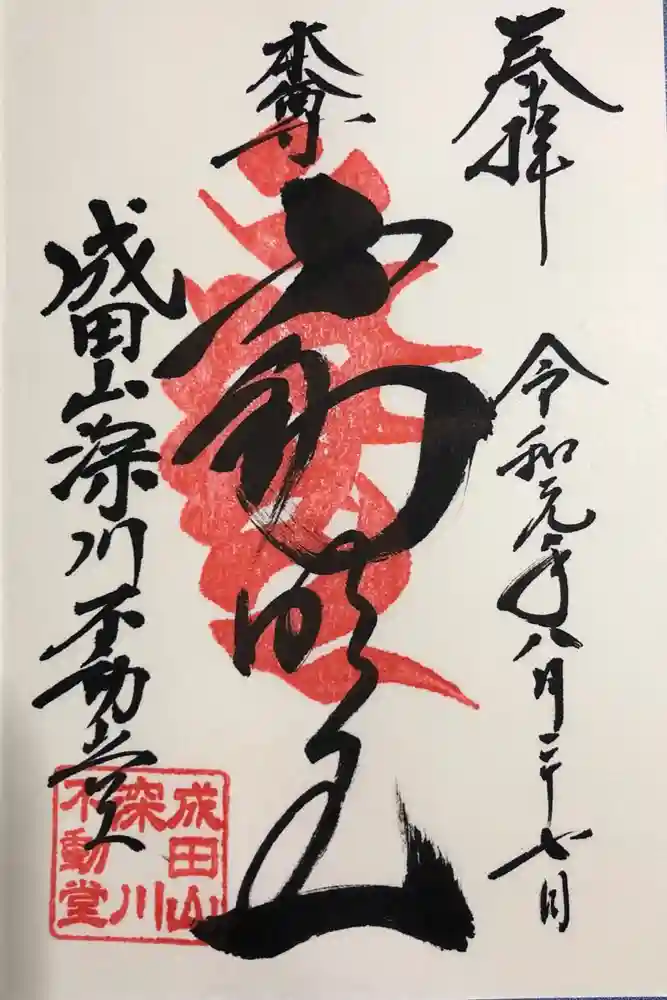 奉拝
令和元年八月二十七日
本尊
不動明王
成田山深川不動堂
成田山
深川
不動堂